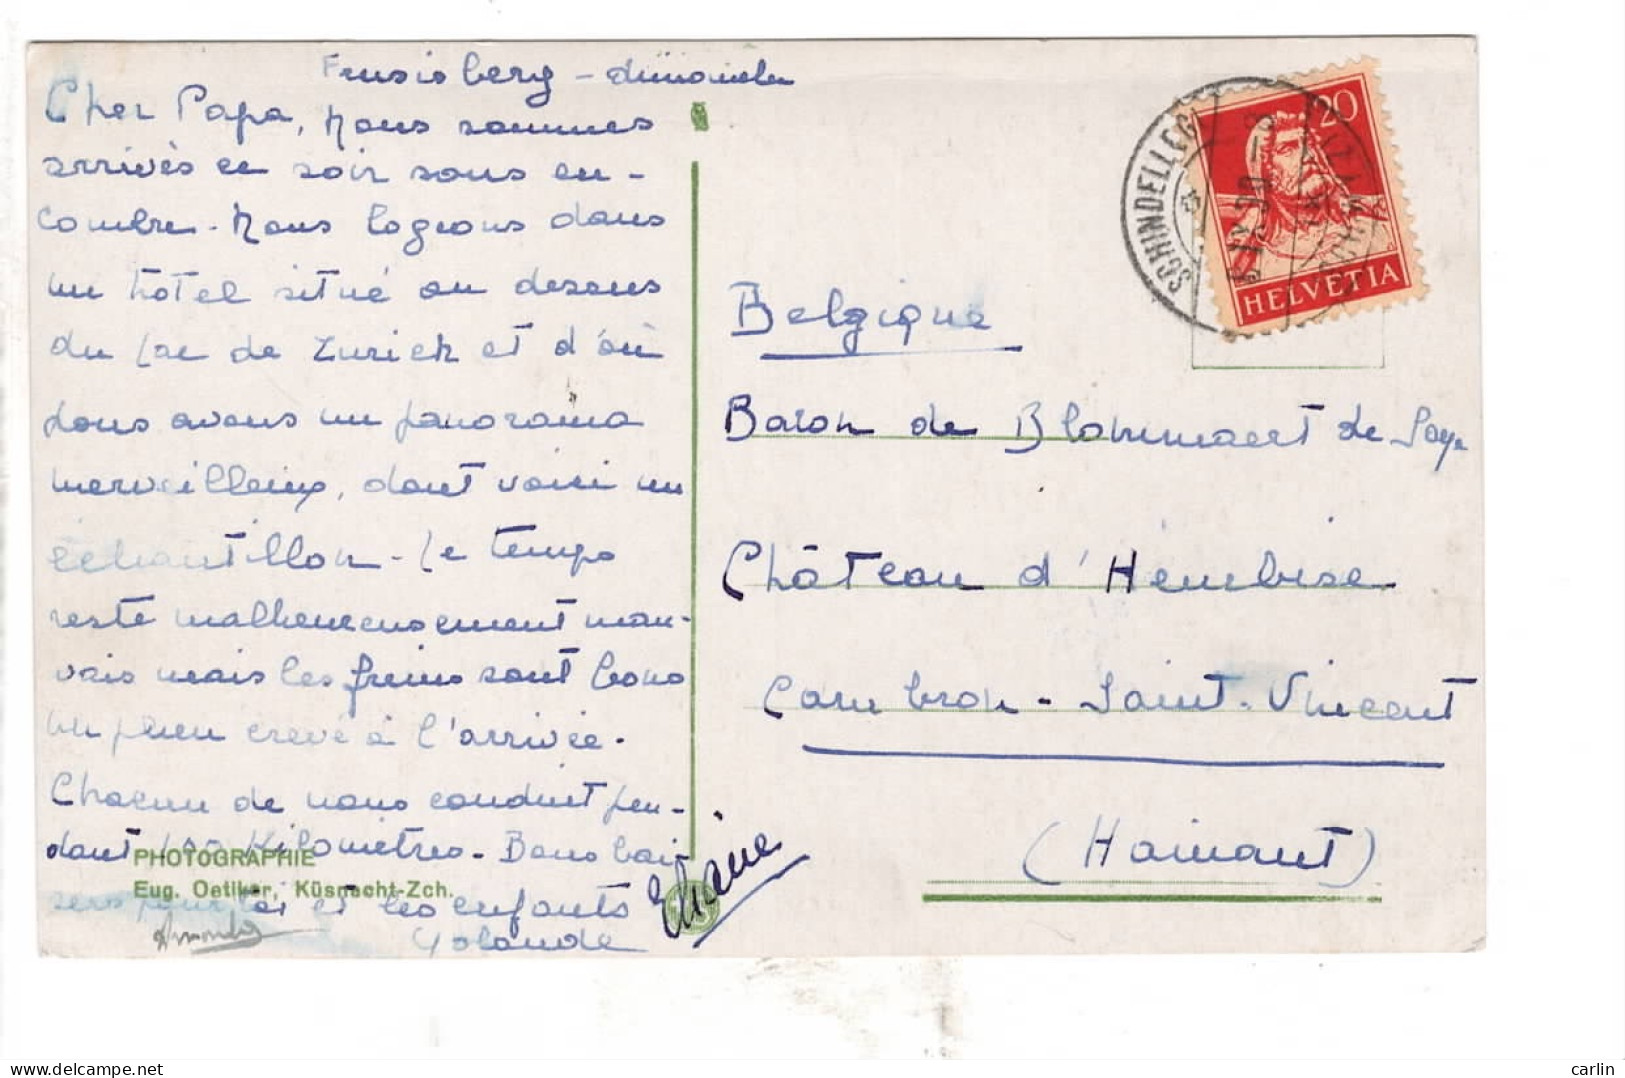 Feusisberg - dimanche
Cher Papa, Nous sommes
arrivés ce soir sans en-
combre. Nous logeons dans
un hôtel situé au dessus
du Lac de Zurich et d'où
nous avons un panorama
merveilleux, dont voici un
échantillon. Le temps
reste malheureusement mau-
vais mais les freins sont bons
un pneu crevé à l'arrivée.
Chacun de nous conduit pen-
dant 100 Kilomètres. Bons bai-
sers pour toi et les enfants
Yolande
PHOTOGRAPHIE
Eug. Oetiker, Küsnacht-Zch.
HELVETIA
20
SCHINDELLEGI
Belgique
Baron de Blommaert de Soye
Château d'Hembise
Cambron-Saint-Vincent
(Hainaut)
carlin